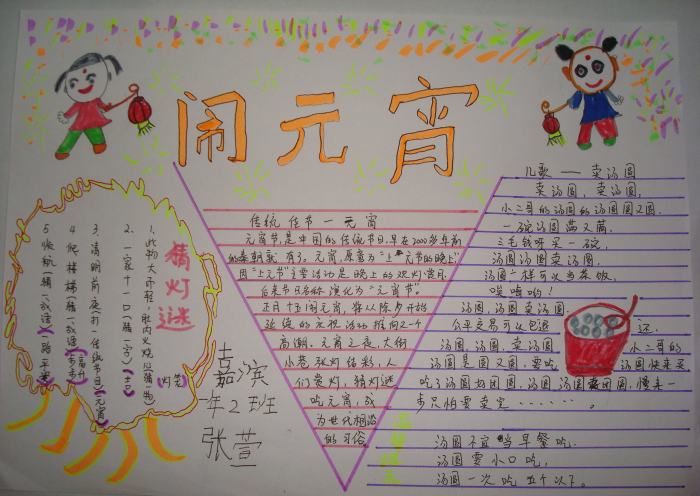 闹元宵
猜灯谜
1.此物大而轻,肚内火烧心(猜物)(灯笼)
2.一家十一口(猜一字)(吉)
3.清明前夜(打一传统节日)(元宵)
4.爬楼梯(猜一成语)(步步高升)
5.快航(猜一成语)(一路平安)
嘉滨
一年2班
张萱
传统佳节一元宵
元宵节,是中国的传统节日,早在2000多年前
的秦朝就有了。元宵,原意为“上元节的晚上”,
因“上元节”主要活动是晚上的观灯赏月,
后来节日名称演化为“元宵节”。
正月十五闹元宵,将从除夕开始
延续的庆祝活动推向又一个
高潮。元宵之夜,大街
小巷张灯结彩,人
们赏灯,猜灯谜
吃元宵,成
为世代相沿
的习俗
儿歌——卖汤圆
卖汤圆,卖汤圆,
小二哥的汤圆的汤圆圆又圆.
一碗汤圆满又满.
三毛钱呀买一碗,
汤圆汤圆卖汤圆,
汤圆一样可以当茶饭,
唉嗨哟!
汤圆,汤圆卖汤圆
公平交易可以包退还.
汤圆,汤圆,卖汤圆小二哥的
汤圆是圆又圆,要吃汤圆快来买
吃了汤圆好团圆,汤圆汤圆卖团圆,慢来一
步只怕要卖完......。
汤圆不宜当早餐吃.
汤圆要小口吃,
汤圆一次吃五个以下。